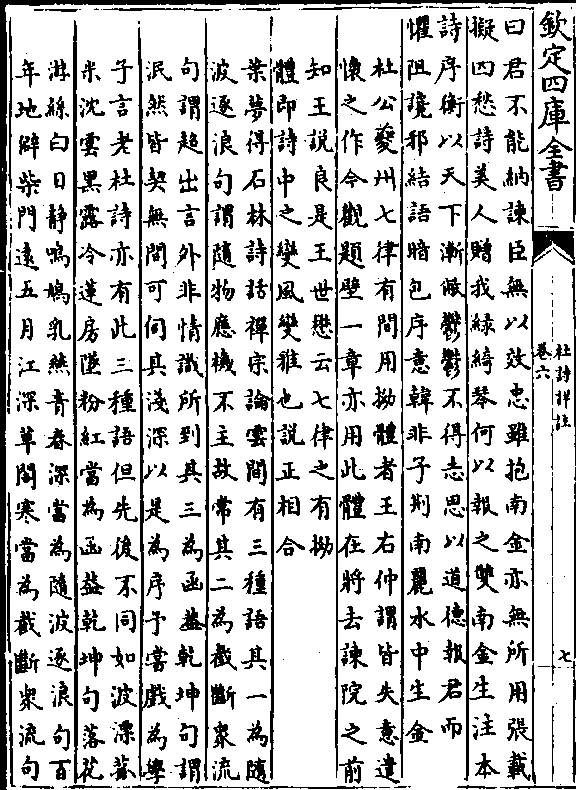 欽定四庫全書
杜詩詳註
卷六
七
曰君不能納諫臣無以效忠雖抱南金亦無所用張載
擬四愁詩美人贈我緑綺琴何以報之雙南金生注本
詩序衡以天下漸弊鬱鬱不得志思以道德報君而
懼阻讒邪結語暗包序意韓非子荆南麗水中生金
杜公夔州七律有間用拗體者王右仲謂皆失意遣
懷之作今觀題壁一章亦用此體在將去諫院之前
知王説良是王世懋云七律之有拗
體即詩中之變風變雅也説正相合
葉夢得石林詩話禪宗論雲間有三種語其一為隨
波逐浪句謂隨物應機不主故常其二為截斷衆流
句謂超出言外非情識所到其三為函葢乾坤句謂
泯然皆契無間可伺其淺深以是為序予嘗戲為學
子言老杜詩亦有此三種語但先後不同如波漂菰
米沈雲黑露冷蓮房墜粉紅當為函葢乾坤句落花
游絲白日静鳴鳩乳燕青春深當為隨波逐浪句百
年地僻柴門逺五月江深草閣寒當為截斷衆流句